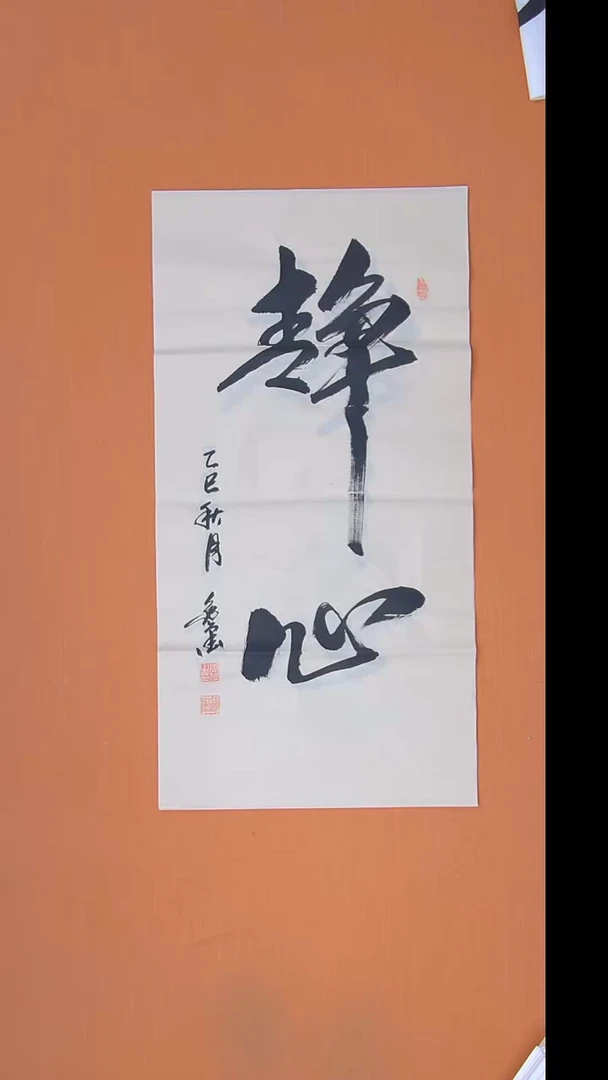 静心
乙巳秋月